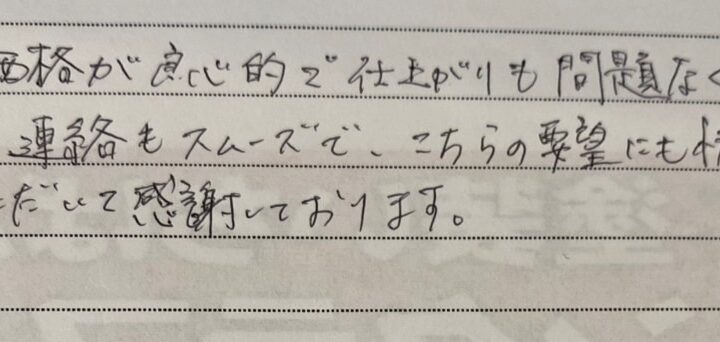 価格が良心的で仕上がりも問題なく
連絡もスムーズで、こちらの要望にも
ただいて感謝しております。